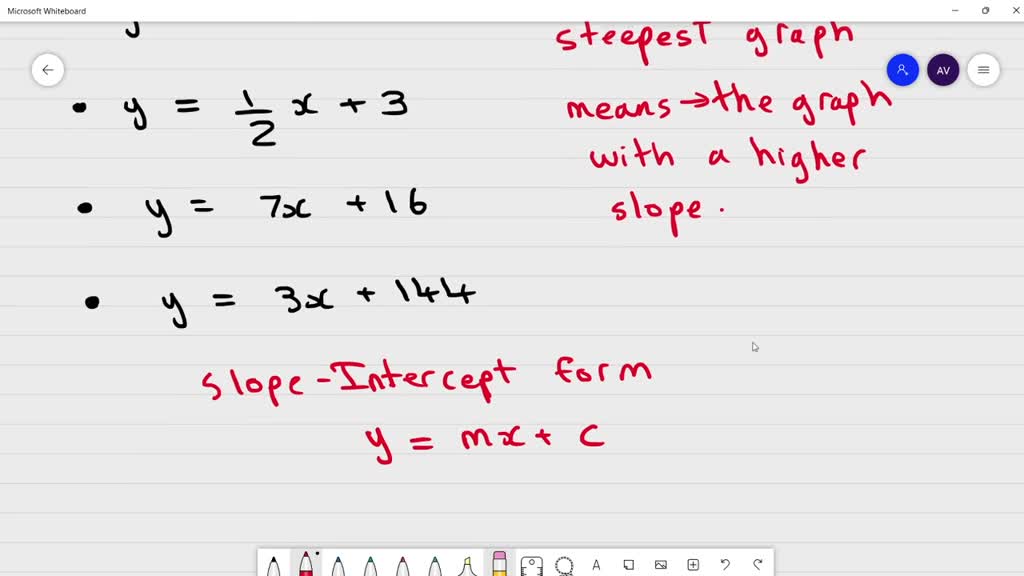 Microsoft Whiteboard
steepest graph
AV
• y = 1/2 x + 3
means → the graph
with a higher
• y = 7x + 16
slope.
• y = 3x + 144
Slope-Intercept form
y = mx + c
A